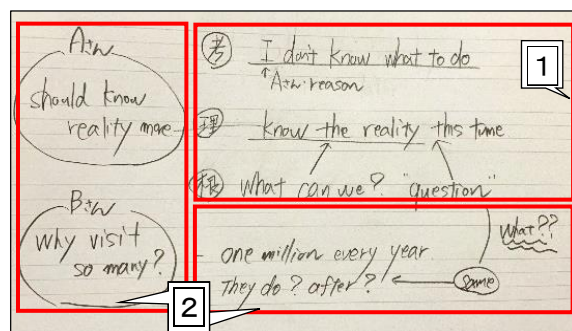 Aさん
should know
reality more
Bさん
Why visit
so many?
考 I don't know what to do
↑Aさん・reason
理 know the reality this time
根 What can we? "question"
What??
- one million every year
They do? after? ← same
1
2